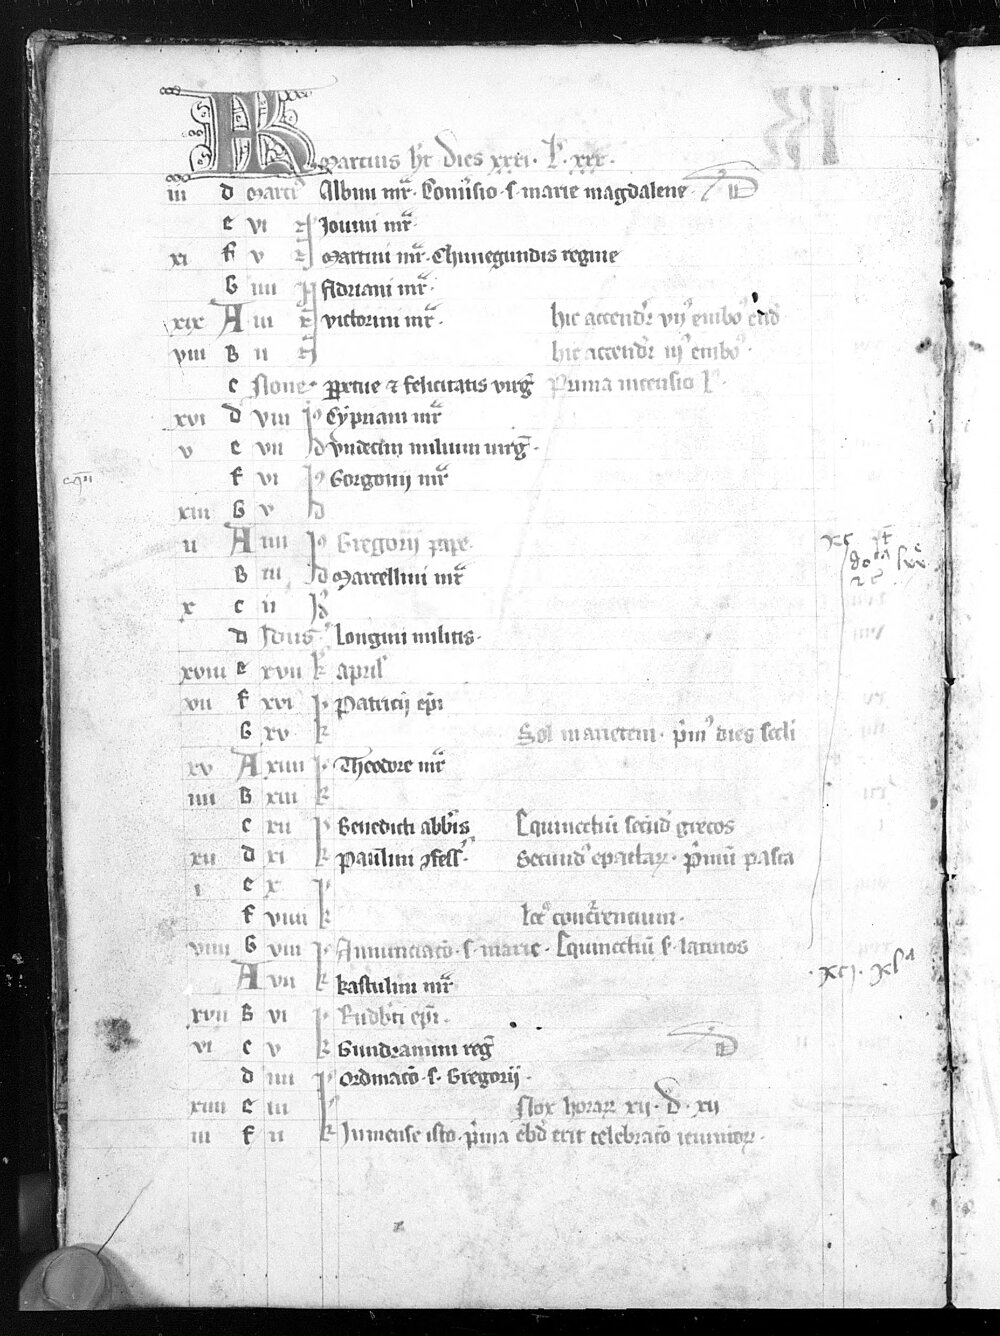 KL Martius ht dies xxxi. L. xxx.
iii d Marcii Albini mr. Conusio s. marie magdalene. D
e vi Jouini mr.
xi f v Martini mr. Chunegundis regine
G iiii Adriani mr.
xix A iii victorini mr. hic accendr vii embo
viii B ii hic accendr iii embo.
c None. ppetue et felicitatis virg Prima incensio L.
xvi d viii Cypriani mr
v e vii Vndecim milium uirg.
f vi Gorgonij mr
xiii G v
ii A iiii Gregorij pape.
B iii Marcellini mr
x c ii
d Idus Longini militis.
xviii e xvii k April
vii f xvi Patricij epi
G xv Sol in arietem. pm dies scli
xv A xiiii Theodore mr
iiii B xiii
c xii Benedicti abbis Equinoctiu secud grecos
xii d xi Paulini 9fess. Secund epactar. pmu pasca
i e x
f viiii loc concrentium.
viiii G viii Annunciaco s. marie. Equinoctiu s. latinos
A vii kastulini mr
xvii B vi Rudbti epi.
vi c v Gundrammi reg D
d iiii Ordinaco s. Gregorij.
xiiii e iii Nox horar xii. d. xii
iii f ii In mense isto. pma ebd erit celebraco ieiunior.